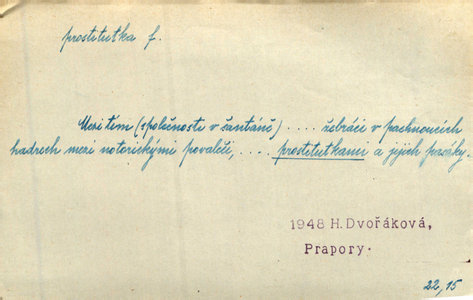 prostitutka f.
Mezi tem (společnosti v šantáně) .... žebráci v páchnoucích
hadrech mezi notorickými povaleči, .... prostitutkami a jejich pasáky.
1948 H. Dvořáková,
Prapory.
22, 15